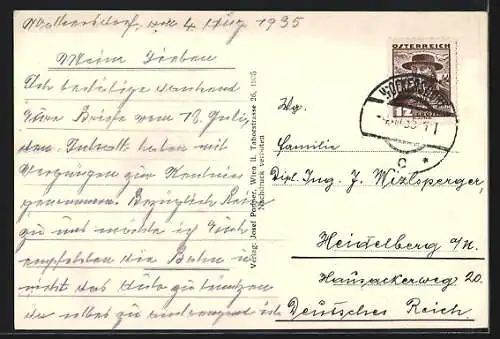 Wöllersdorf, am 4. Aug. 1935
Meine Lieben
Ich bestätige dankend
Eure Briefe vom 18. Juli,
den Inhalt haben mit
Vergnügen zur Kenntnis
genommen. Bezüglich Reise
zu uns möchte ich Euch
empfehlen die Bahn u
nicht das Auto zu benützen
da selbes zu anstrengend ist.
Verlag: Josef Popper, Wien II, Taborstrasse 26, 1935
Nachdruck verboten
ÖSTERREICH
C *
Wg.
Familie
Dipl. Ing. J. Wizlsperger,
Heidelberg a/N.
Hausackerweg 20.
Deutsches Reich.